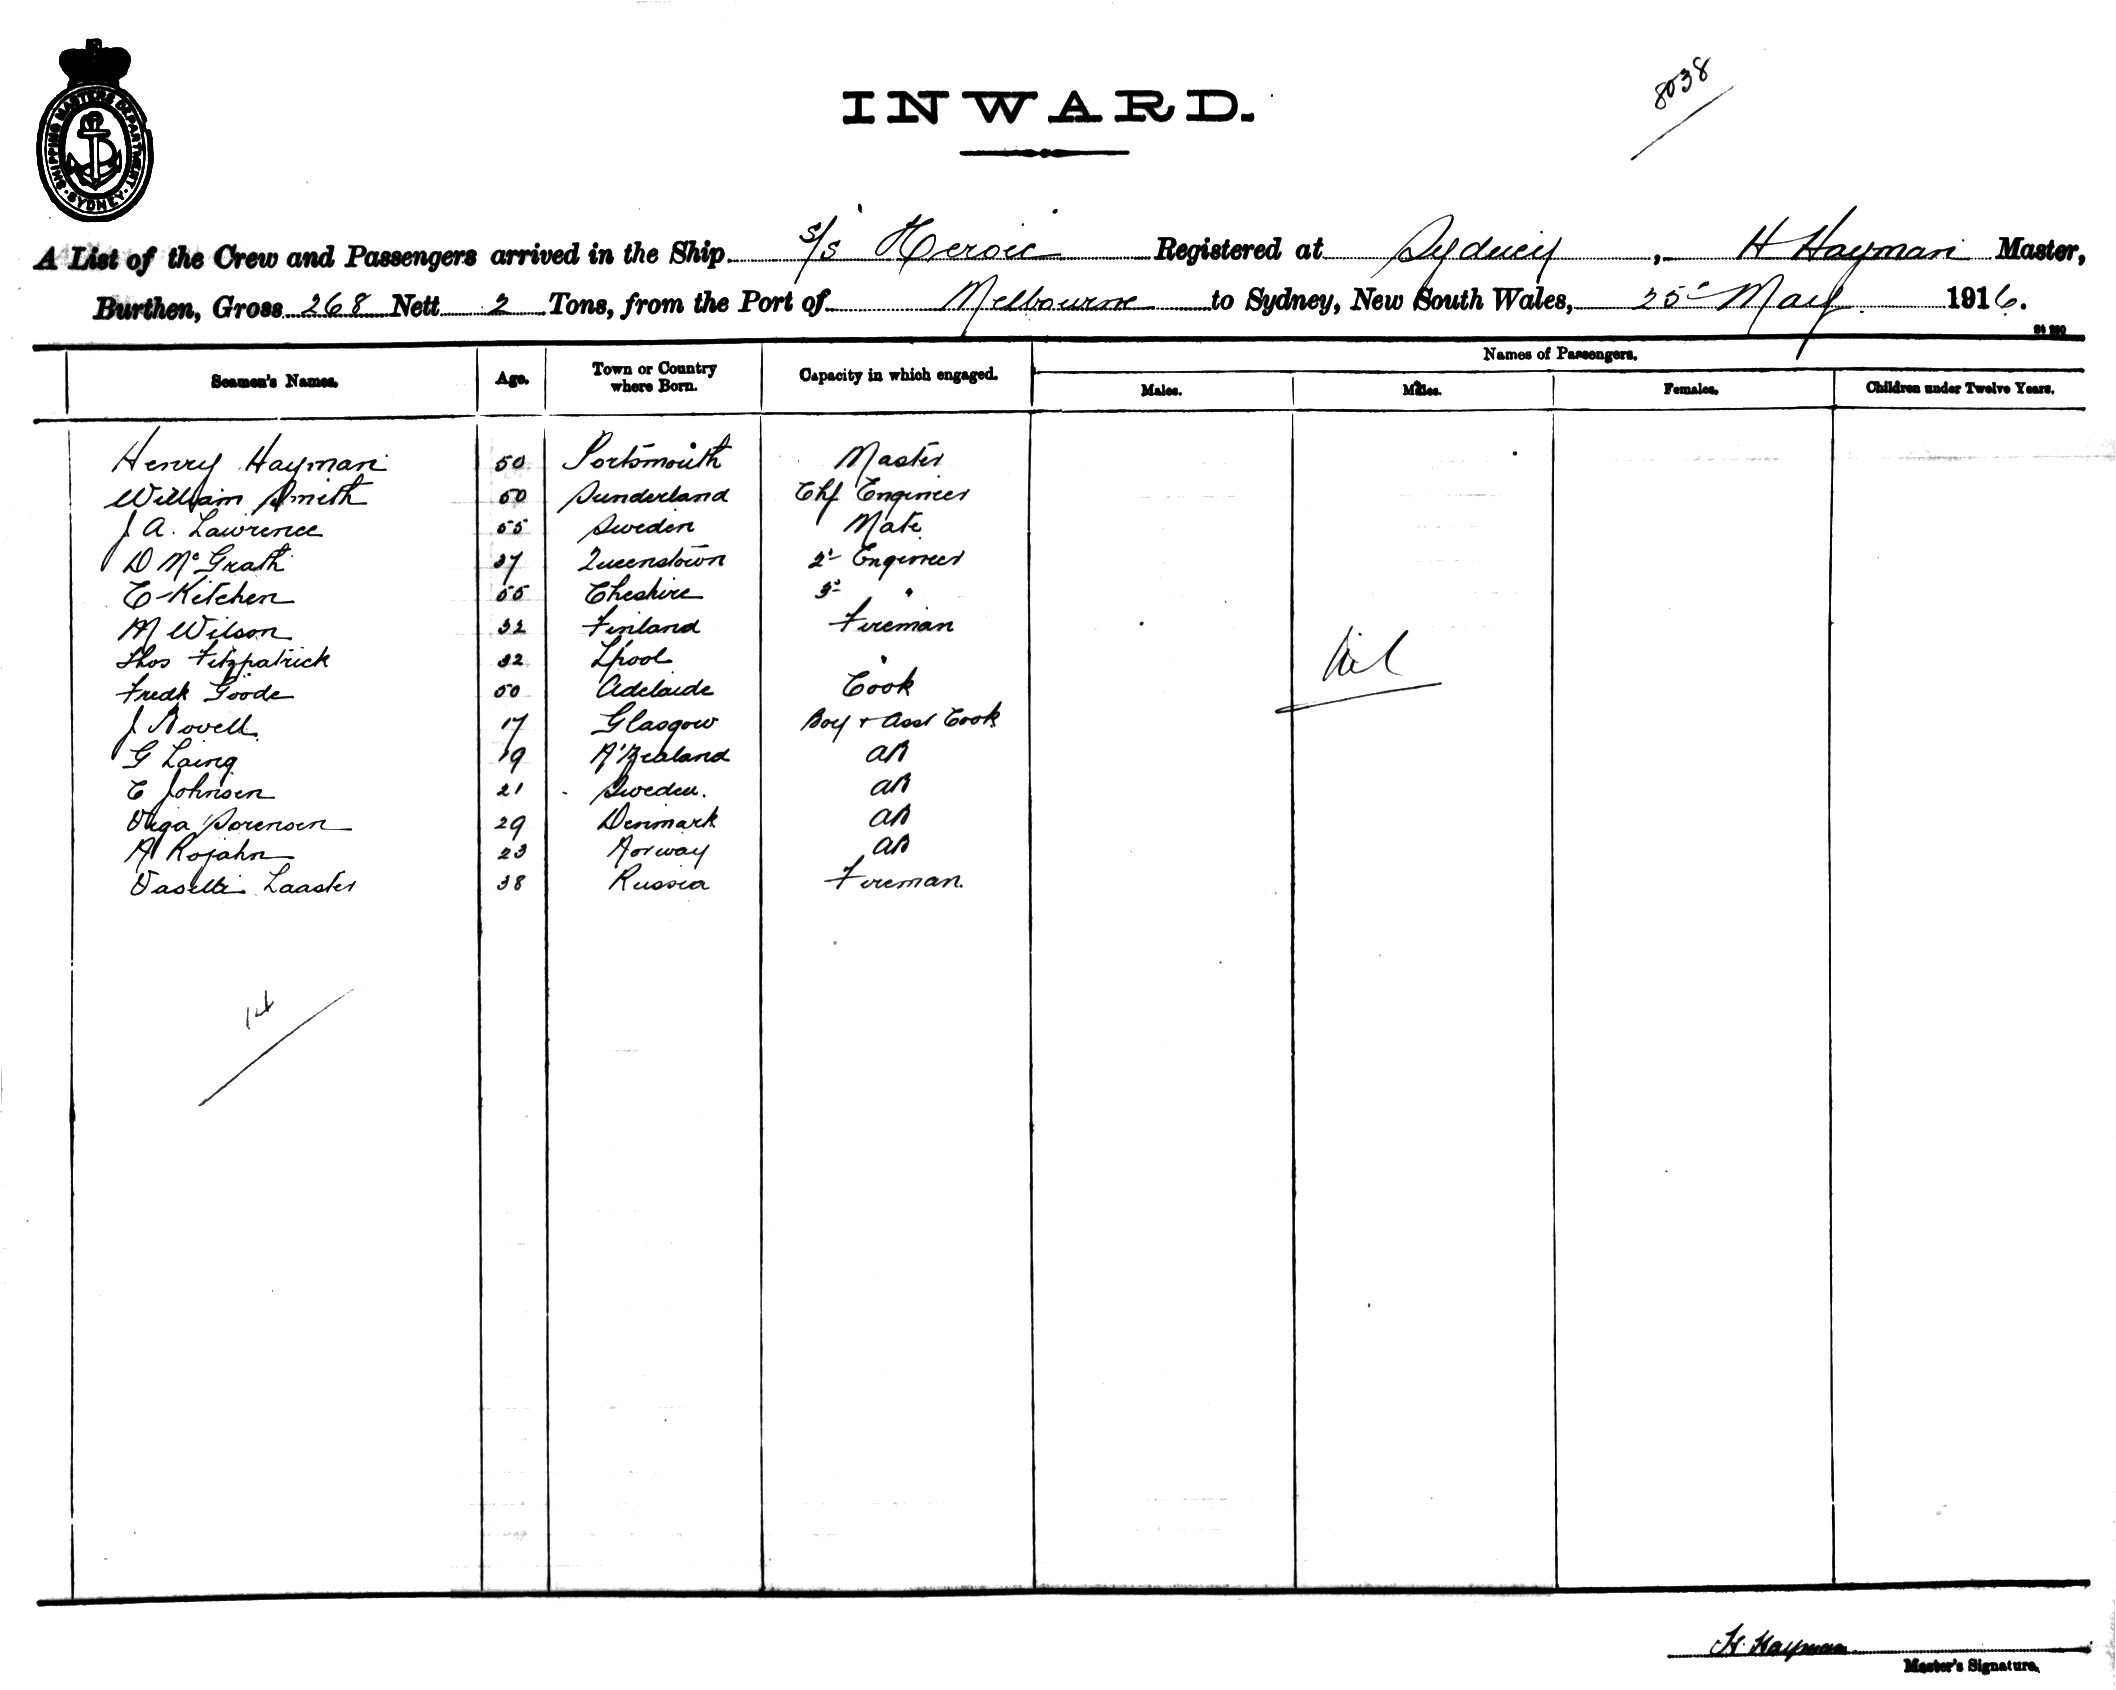 SHIPPING MASTERS DEPARTMENT. SYDNEY.
8038
INWARD.
A List of the Crew and Passengers arrived in the Ship s/s Heroic Registered at Sydney, H Hayman Master,
Burthen, Gross 268 Nett 2 Tons, from the Port of Melbourne to Sydney, New South Wales, 25th May 1916.
Names of Passengers.
Seamen's Names. Age. Town or Country where Born. Capacity in which engaged. Males. Males. Females. Children under Twelve Years.
Henry Hayman 50 Portsmouth Master
William Smith 50 Sunderland Chf Engineer
J A. Lawrence 55 Sweden Mate
D McGrath 37 Queenstown 2d Engineer
E Kitchen 55 Cheshire 3d "
M Wilson 32 Finland Fireman
Thos Fitzpatrick 32 Lpool "
Nil
Fredk Goode 50 Adelaide Cook
J Novell 17 Glasgow Boy + Asst Cook
G Laing 19 N'Zealand AB
E Johnsen 21 Sweden. AB
Viga Sorensen 29 Denmark AB
A Rojahn 23 Norway AB
Vaselli Laaster 38 Russia Fireman.
14
H. Hayman
Master's Signature.